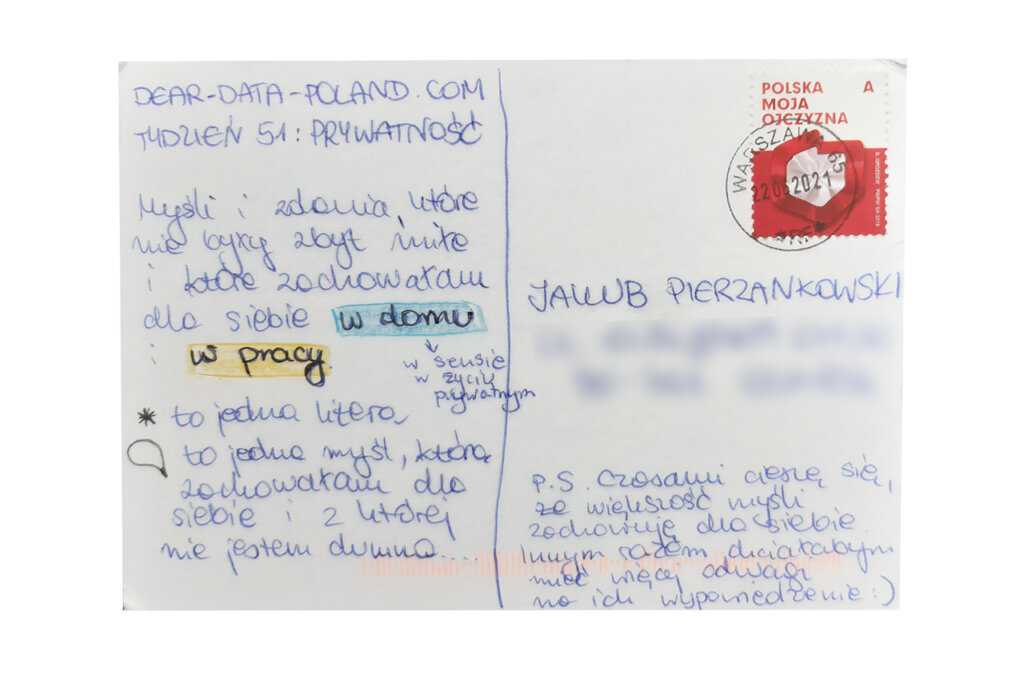 DEAR-DATA-POLAND.COM
TYDZIEŃ 51: PRYWATNOŚĆ
Myśli i zdania, które
nie były zbyt miłe
i które zachowałam
dla siebie w domu
i w pracy
w sensie
w życiu
prywatnym
* to jedna litera
to jedna myśl, która
zachowałam dla
siebie i z której
nie jestem dumna...
POLSKA A
MOJA
OJCZYZNA
WARSZAWA 65
22062021
JAKUB PIERZANKOWSKI
P.S. Czasami cieszę się,
że większość myśli
zachowuję dla siebie.
Innym razem chciałabym
mieć więcej odwagi
na ich wypowiedzenie :)